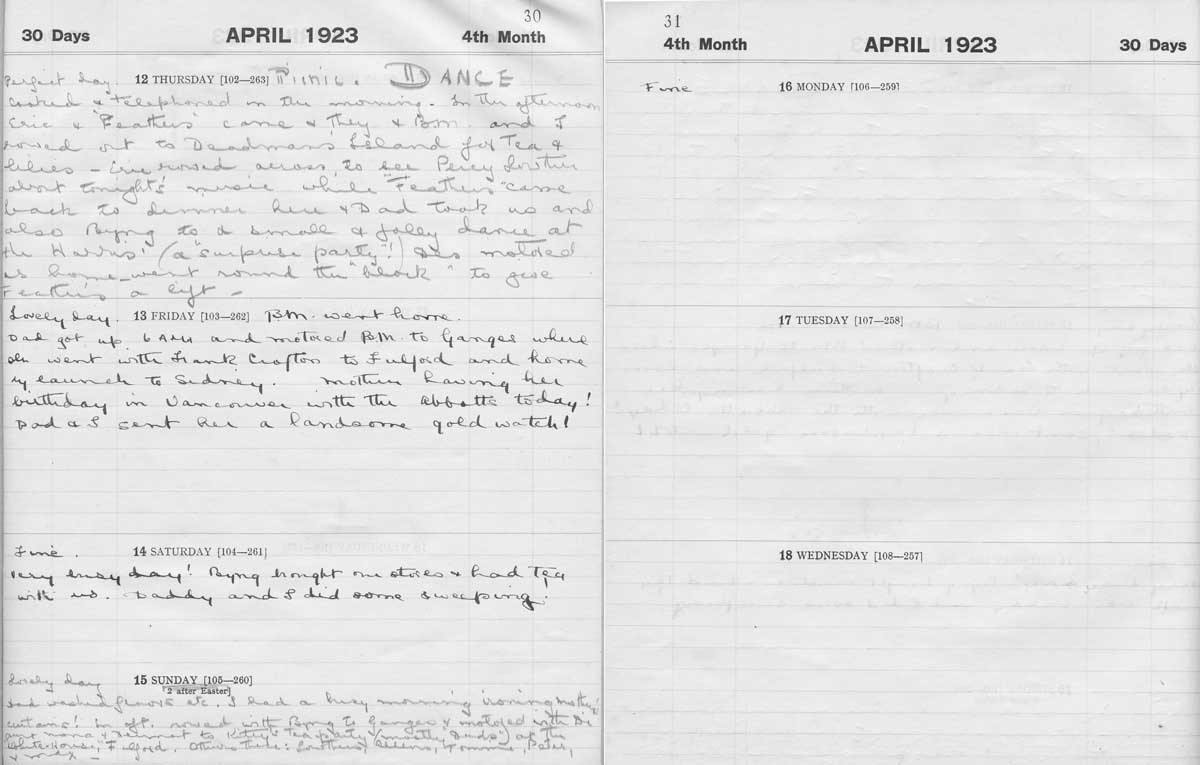 30
30 Days APRIL 1923 4th Month
Perfect day. 12 THURSDAY [102—263] Picnic. DANCE
Cooked & telephoned in the morning. In the afternoon
Eric & "Feathers" came & they & B.M. and I
rowed out to Deadman's Island for Tea &
lilies — Eric rowed across to see Percy Lowther
about tonight's music while "Feathers" came
back to dinner here & Dad took us and
also Byng to a small & jolly dance at
the Harris' (a "surprise party"!) Des motored
us home — went round the "block" to give
Feathers a lift —
Lovely day. 13 FRIDAY [103—262] B.M. went home.
Dad got up 6 AM and motored B.M. to Ganges where
she went with Frank Crofton to Fulford and home
by launch to Sidney. Mother having her
birthday in Vancouver with the Abbotts today!
Dad & I sent her a handsome gold watch!
Fine. 14 SATURDAY [104—261]
Very busy day! Byng brought our stores & had tea
with us. Daddy and I did some sweeping.
Lovely day 15 SUNDAY [105—260]
[2 after Easter]
Dad washed etc. I had a busy morning ironing Mother's
curtains! In aft. rowed with Byng to Ganges & motored with
& to Kitty's Tea party (mostly) at the
White House, Fulford. Others there:
31
4th Month APRIL 1923 30 Days
Fine 16 MONDAY [106—259]
17 TUESDAY [107—258]
18 WEDNESDAY [108—257]